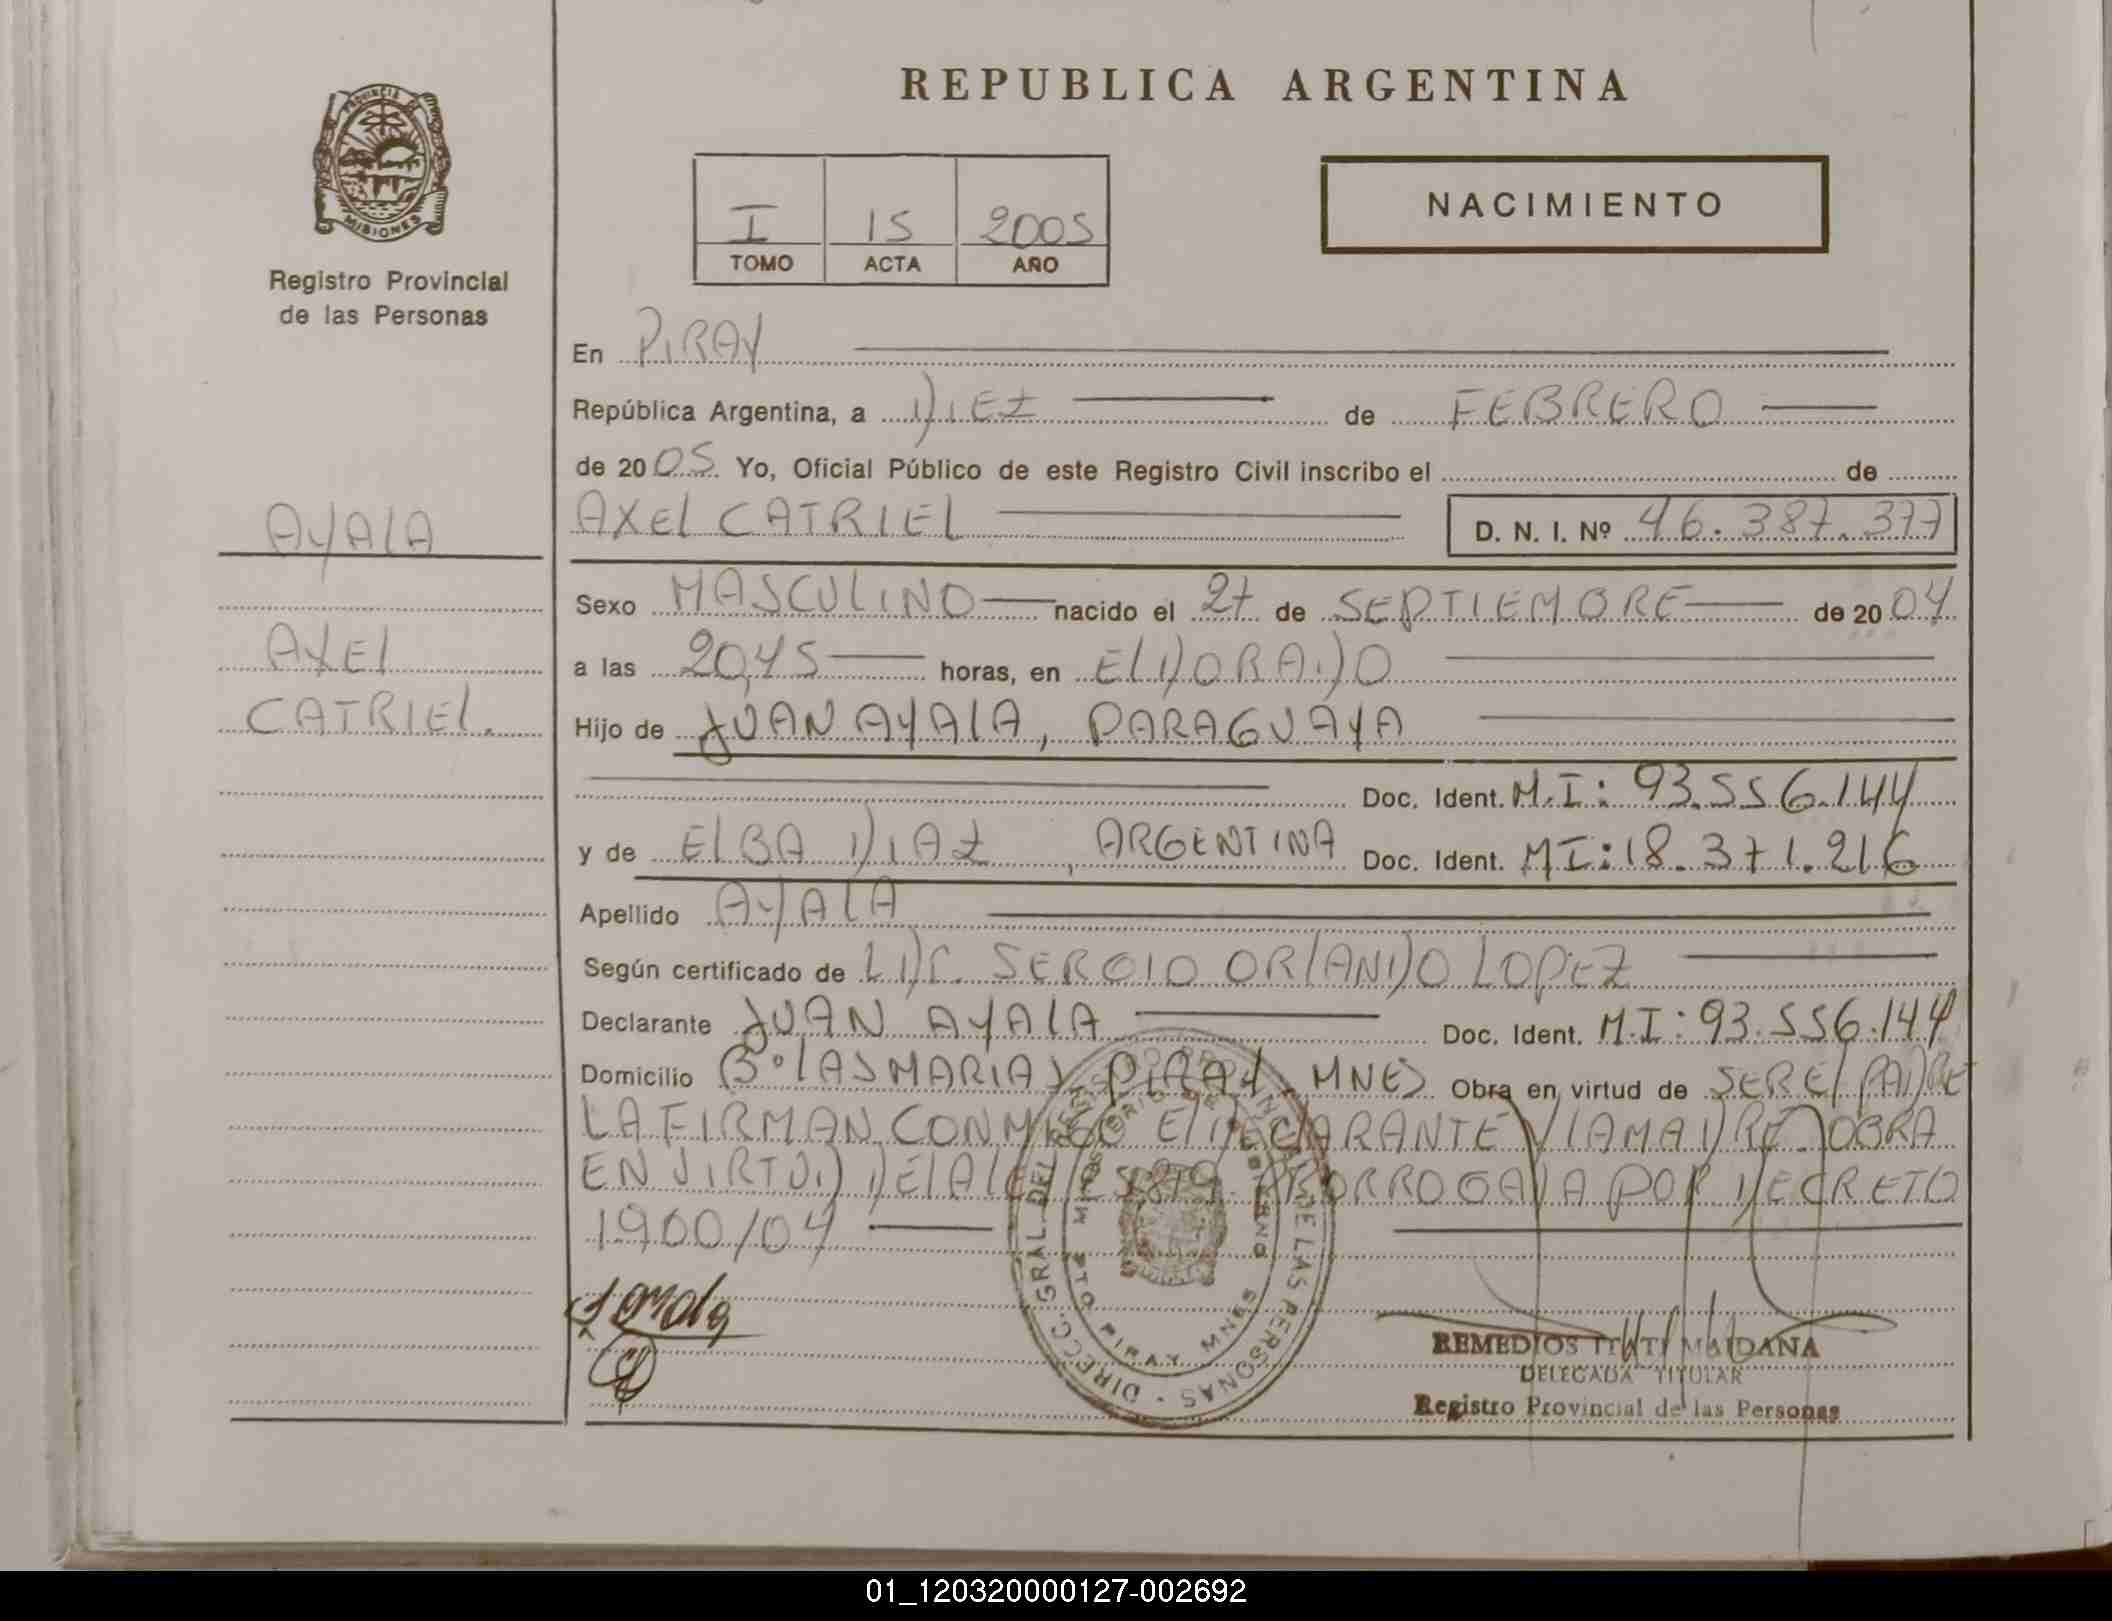 REPUBLICA ARGENTINA
PROVINCIA DE
MISIONES
Registro Provincial
de las Personas
I 15 2005
TOMO ACTA AÑO
NACIMIENTO
En PIRAY
República Argentina, a DIEZ de FEBRERO
de 2005 Yo, Oficial Público de este Registro Civil inscribo el de
AYALA
AXEL
CATRIEL.
AXEL CATRIEL D. N. I. Nº 46.387.377
Sexo MASCULINO nacido el 27 de SEPTIEMBRE de 2004
a las 20,45 horas, en ELDORADO
Hijo de JUAN AYALA, PARAGUAYA
Doc. Ident. M.I: 93.556.144
y de ELBA DIAZ, ARGENTINA Doc. Ident. MI: 18.371.216
Apellido AYALA
Según certificado de LIC. SERGIO ORLANDO LOPEZ
Declarante JUAN AYALA Doc. Ident. M.I: 93.556.144
Domicilio Bº LAS MARIAS PIRAY MNES Obra en virtud de SER EL PADRE
LA FIRMAN CONMIGO EL DECLARANTE Y LA MADRE. OBRA
EN VIRTUD DE LA LEY PRORROGADA POR DECRETO
1900/04
DIRECC. GRAL. DEL DE LAS PERSONAS
PTO PIRAY MNES
REMEDIOS ITATI MAIDANA
DELEGADA TITULAR
Registro Provincial de las Personas
01_120320000127-002692